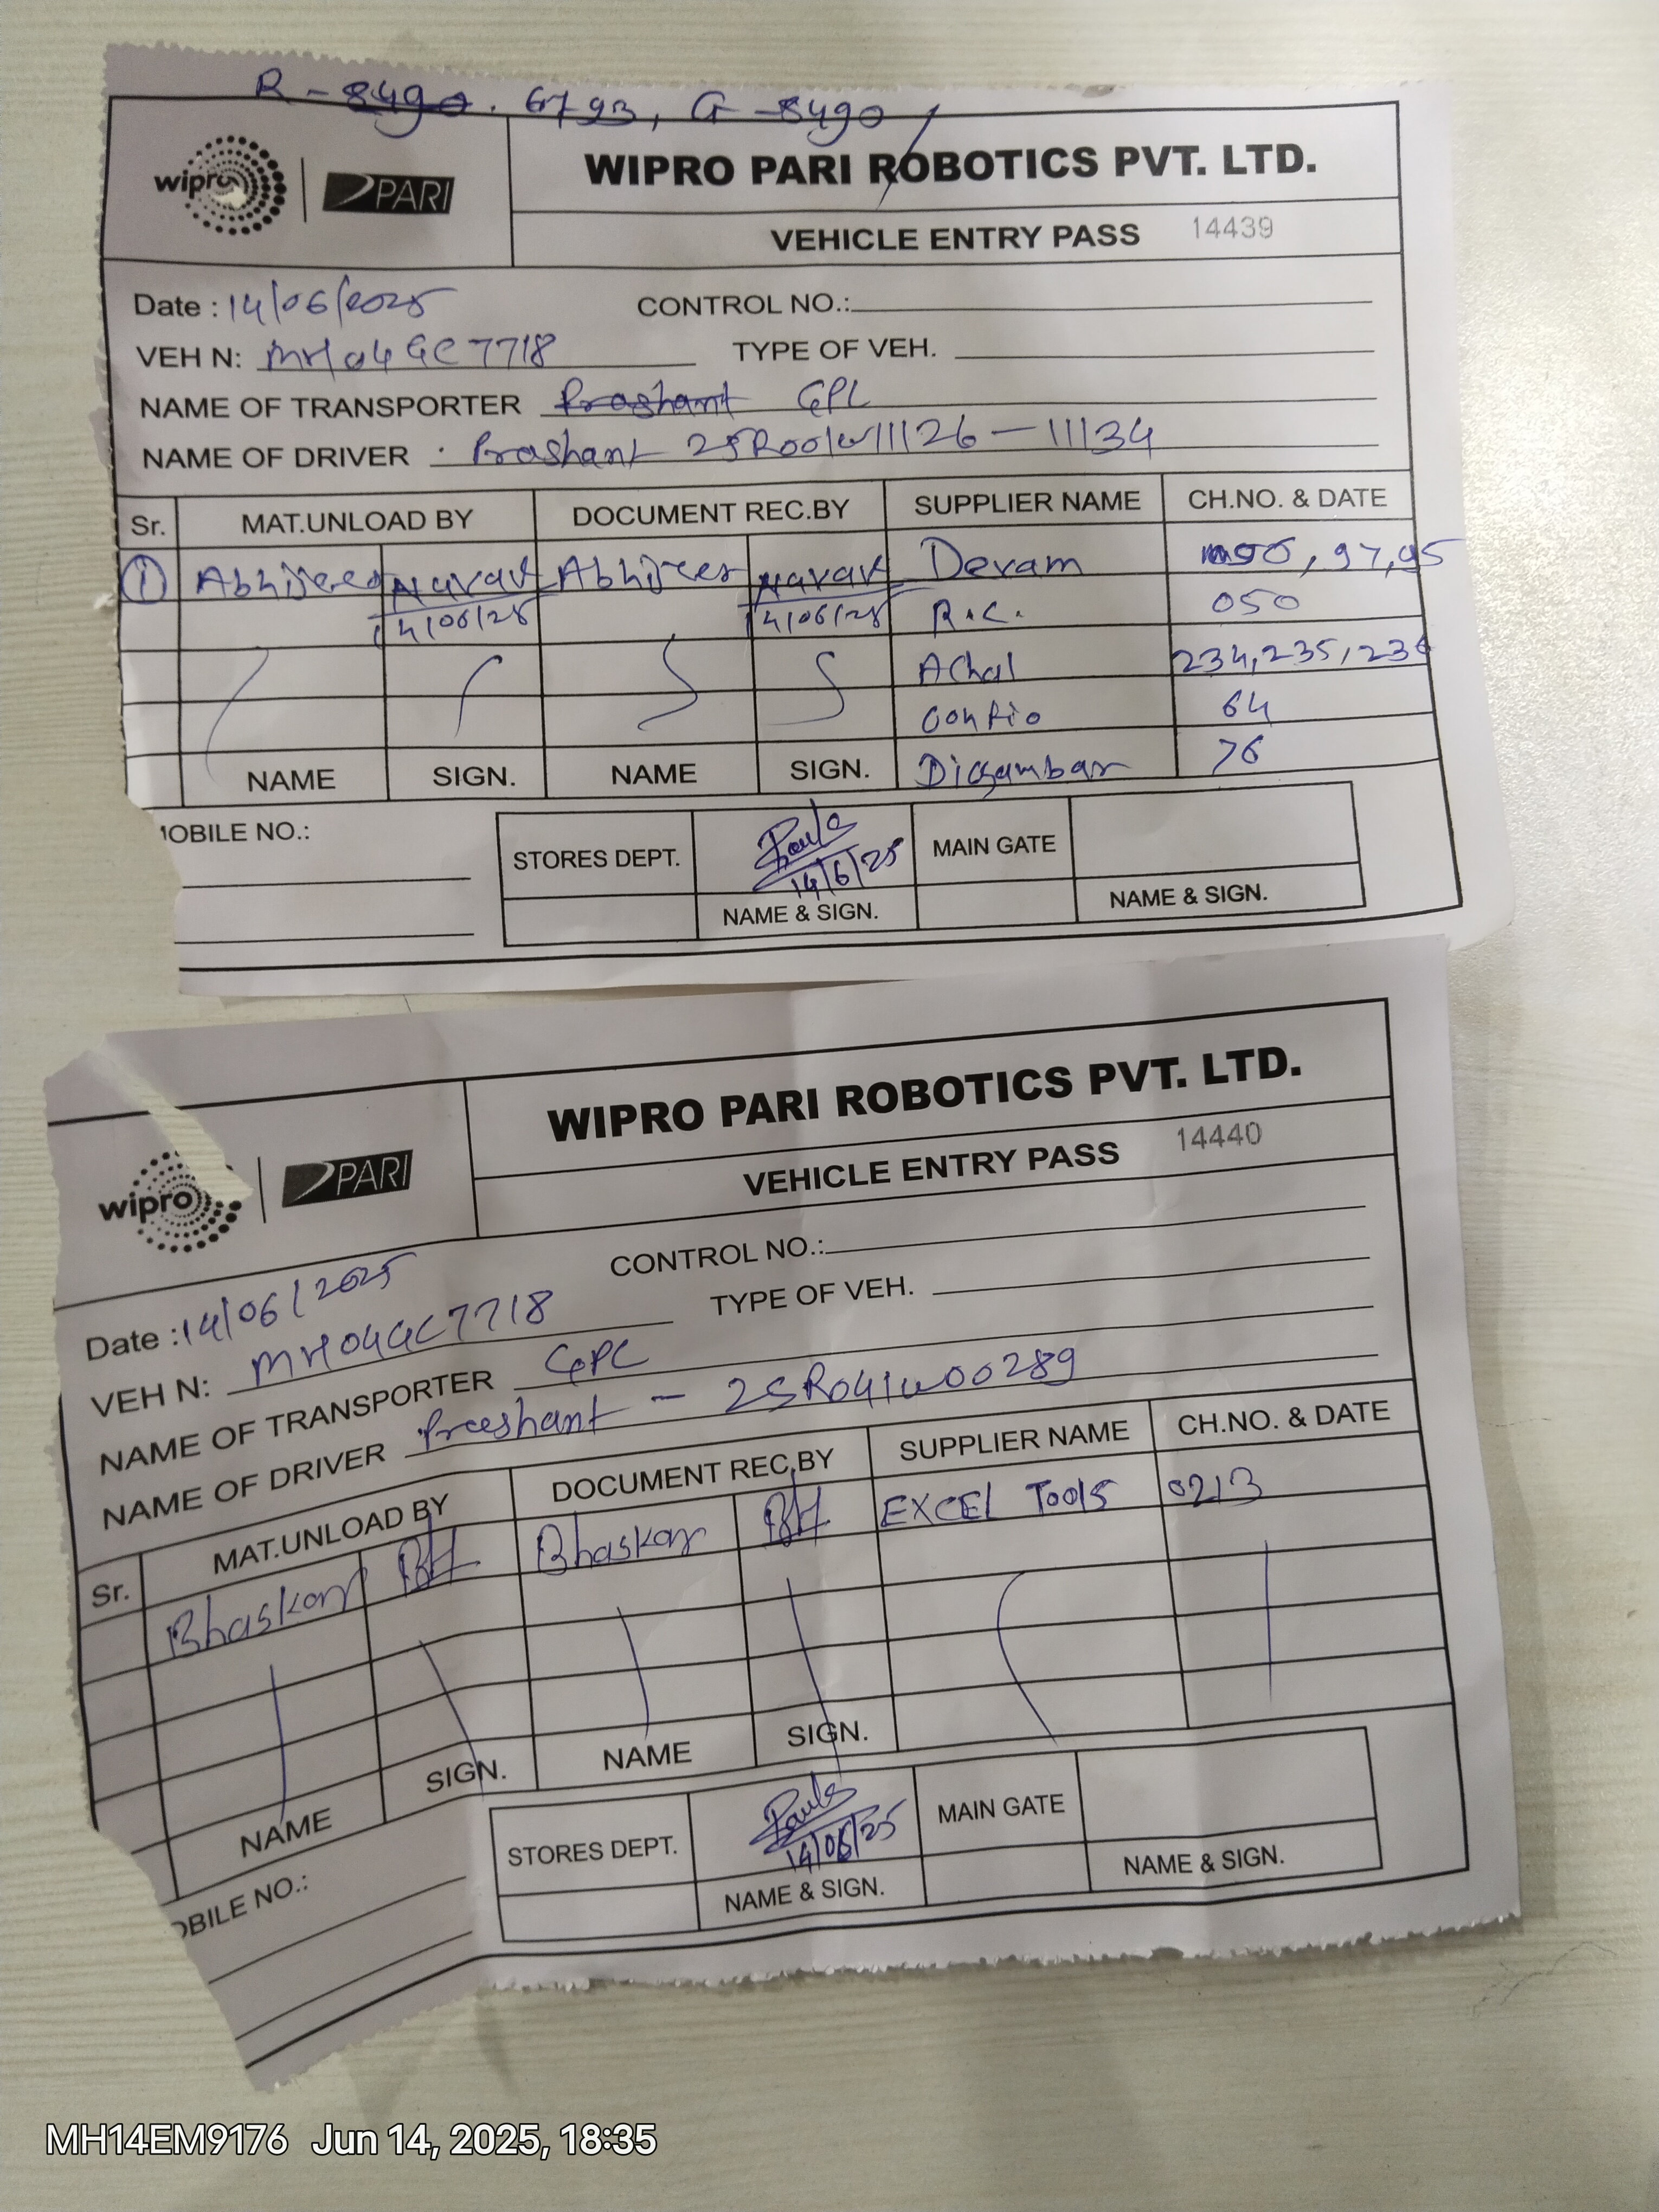 R - 8490. 6793, G - 8490
wipro | PARI
WIPRO PARI ROBOTICS PVT. LTD.
VEHICLE ENTRY PASS 14439
Date : 14/06/2025 CONTROL NO.:
VEH N: MH04GC7718 TYPE OF VEH.
NAME OF TRANSPORTER Prashant GPL
NAME OF DRIVER Prashant 25R001W11126 - 11134
Sr. MAT.UNLOAD BY DOCUMENT REC.BY SUPPLIER NAME CH.NO. & DATE
1 Devam , 97, 95
14/06/25 14/06/25 R.C. 050
Achal 234, 235, 236
64
NAME SIGN. NAME SIGN. Digambar 76
MOBILE NO.:
STORES DEPT. 14/6/25 MAIN GATE
NAME & SIGN. NAME & SIGN.
wipro | PARI
WIPRO PARI ROBOTICS PVT. LTD.
VEHICLE ENTRY PASS 14440
Date : 14/06/2025 CONTROL NO.:
VEH N: MH04GC7718 TYPE OF VEH.
NAME OF TRANSPORTER GPL
NAME OF DRIVER Prashant - 25R041W00289
Sr. MAT.UNLOAD BY DOCUMENT REC.BY SUPPLIER NAME CH.NO. & DATE
Bhaskar BH Bhaskar BH EXCEL Tools 0213
NAME SIGN. NAME SIGN.
OBILE NO.:
STORES DEPT. 14/06/25 MAIN GATE
NAME & SIGN. NAME & SIGN.
MH14EM9176 Jun 14, 2025, 18:35